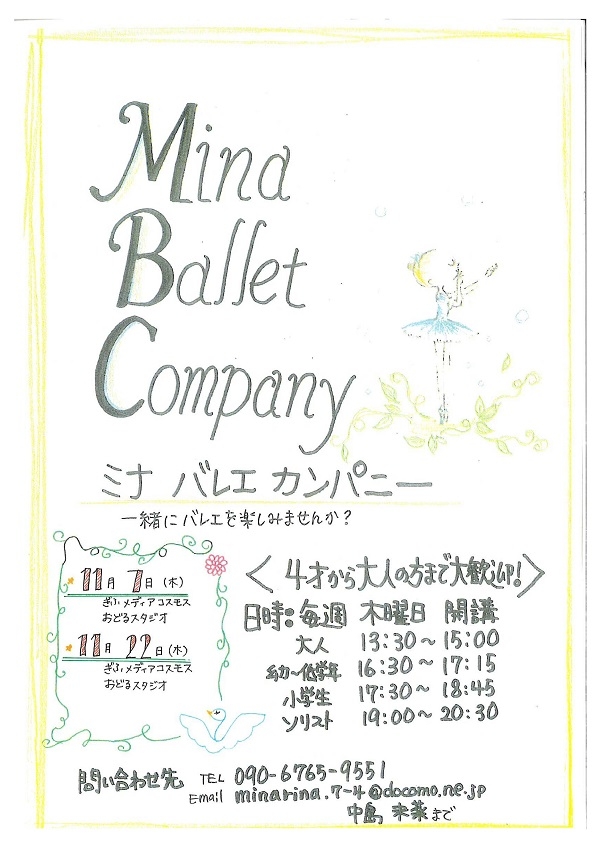 Mina
Ballet
Company
ミナ バレエ カンパニー
一緒にバレエを楽しみませんか？
11月 7日(木)
ぎふメディアコスモス
おどるスタジオ
11月 22日(木)
ぎふメディアコスモス
おどるスタジオ
〈 4才から大人の方まで大歓迎! 〉
日時: 毎週 木曜日 開講
大人 13:30〜15:00
幼加〜低学年 16:30〜17:15
小学生 17:30〜18:45
ソリスト 19:00〜20:30
問い合わせ先 TEL 090-6765-9551
Email minarina.7-4@docomo.ne.jp
中島 未菜まで